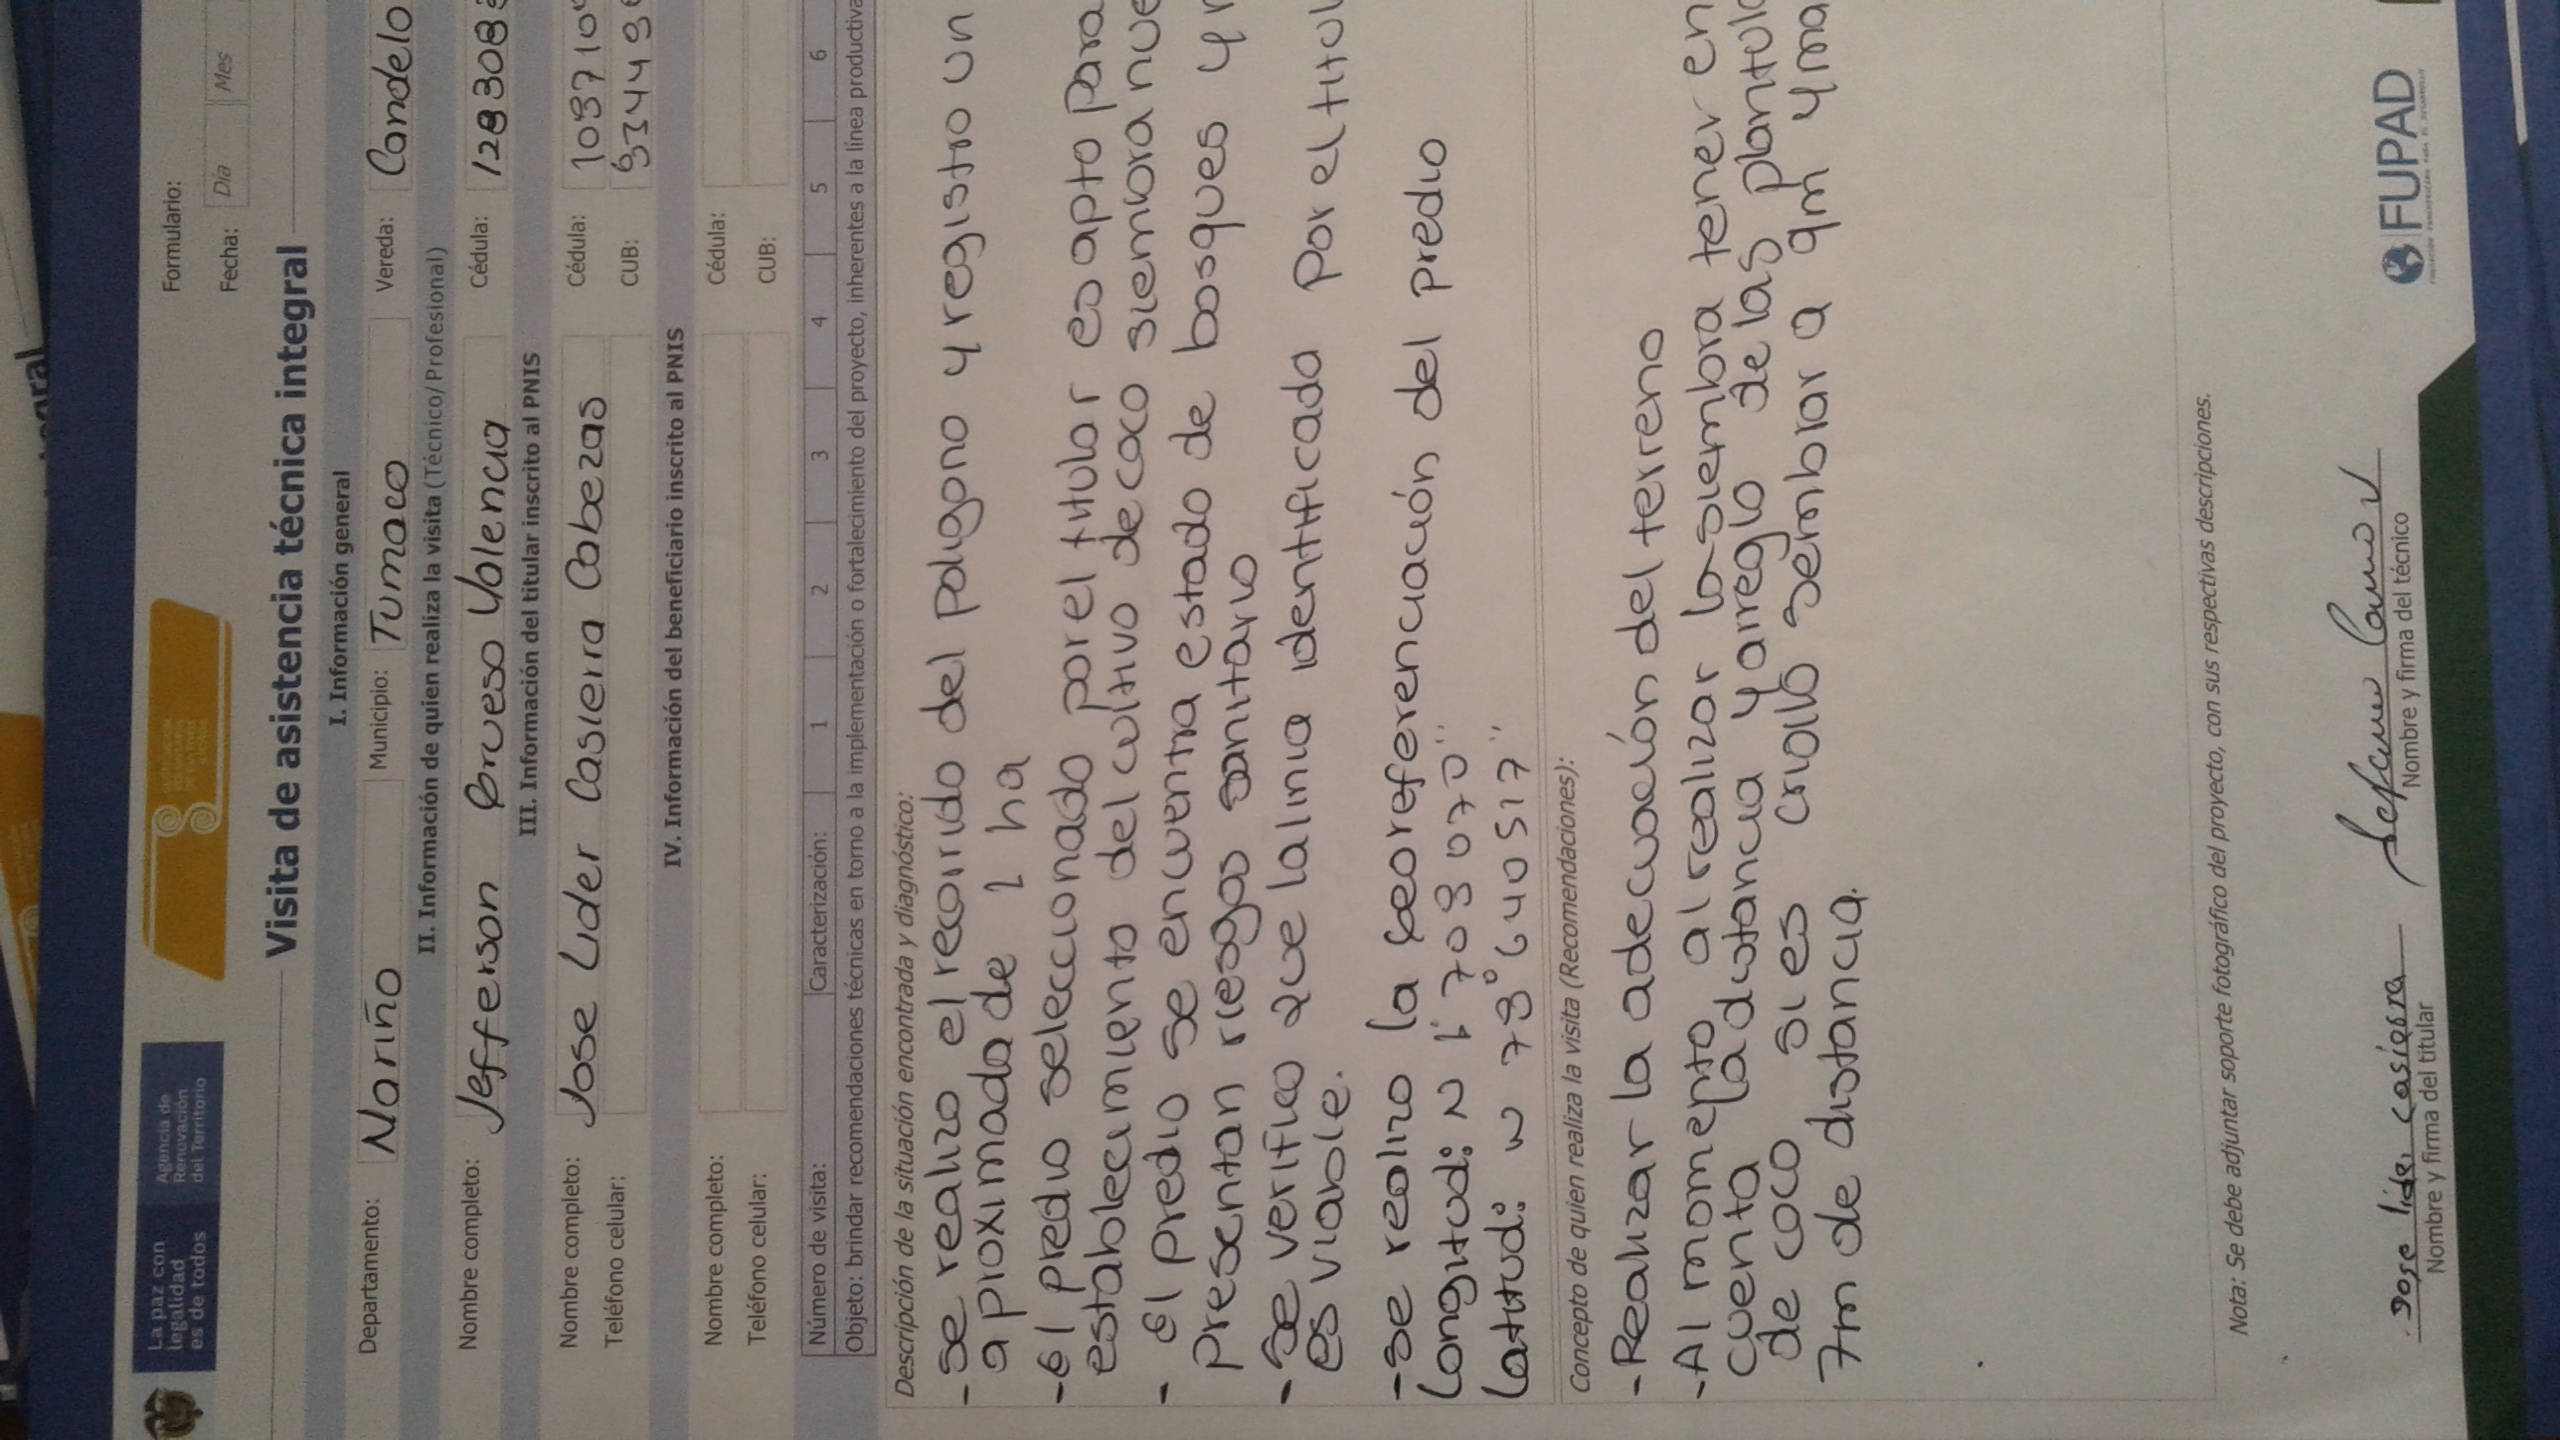 La paz con
legalidad
es de todos
Agencia de
Renovación
del Territorio
Formulario:
Fecha: Día Mes
Visita de asistencia técnica integral
I. Información general
Departamento: Nariño Municipio: Tumaco Vereda: Candelo
II. Información de quien realiza la visita (Técnico/Profesional)
Nombre completo: Jefferson Grueso Valencia Cédula: 128308
III. Información del titular inscrito al PNIS
Nombre completo: Jose Lider Casierra Cabezas Cédula: 108710
Teléfono celular: CUB:
IV. Información del beneficiario inscrito al PNIS
Nombre completo: Cédula:
Teléfono celular: CUB:
Número de visita: Caracterización: 1 2 3 4 5 6
Objeto: brindar recomendaciones técnicas en torno a la implementación o fortalecimiento del proyecto, inherentes a la línea productiva
Descripción de la situación encontrada y diagnóstico:
- se realizo el recorrido del poligono y registro un
aproximado de 1 ha
- El predio seleccionado por el titular es apto para
establecimiento del cultivo de coco siembra nue
- El predio se encuentra estado de bosques y n
presentan riesgos sanitario
- Se verifico que la linia identificada por el titul
es viable.
- se realizo la georeferenciación del predio
Longitud: N 1° 709070"
Latitud: W 78° 640517"
Concepto de quien realiza la visita (Recomendaciones):
- Realizar la adecuación del terreno
- Al momento al realizar la siembra tener en
cuenta la distancia y arreglo de las plantul
de coco si es criollo sembrar a 9m y ma
7m de distancia.
Nota: Se debe adjuntar soporte fotográfico del proyecto, con sus respectivas descripciones.
Jose lider casierra
Nombre y firma del titular
Nombre y firma del técnico
FUPAD